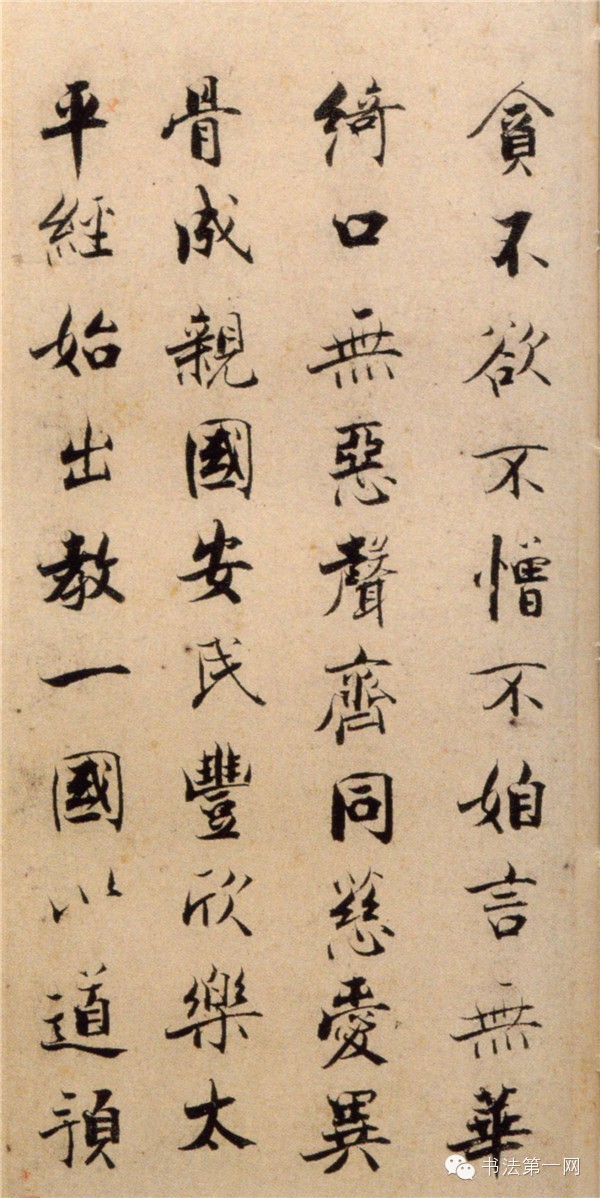 貪不欲不憎不妬言無華
綺口無惡聲齊同慈愛異
骨成親國安民豐欣樂太
平經始出教一國以道預
书法第一网